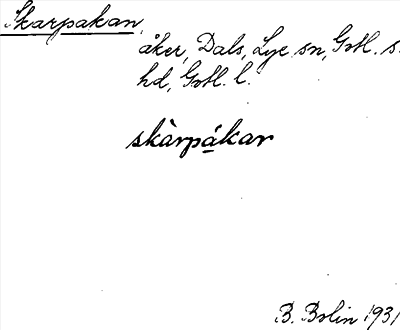 Skarpakan,
åker, Dals, Lye sn, Gotl. s.
hd, Gotl. l.
skàrpákar
B. Bolin 1931